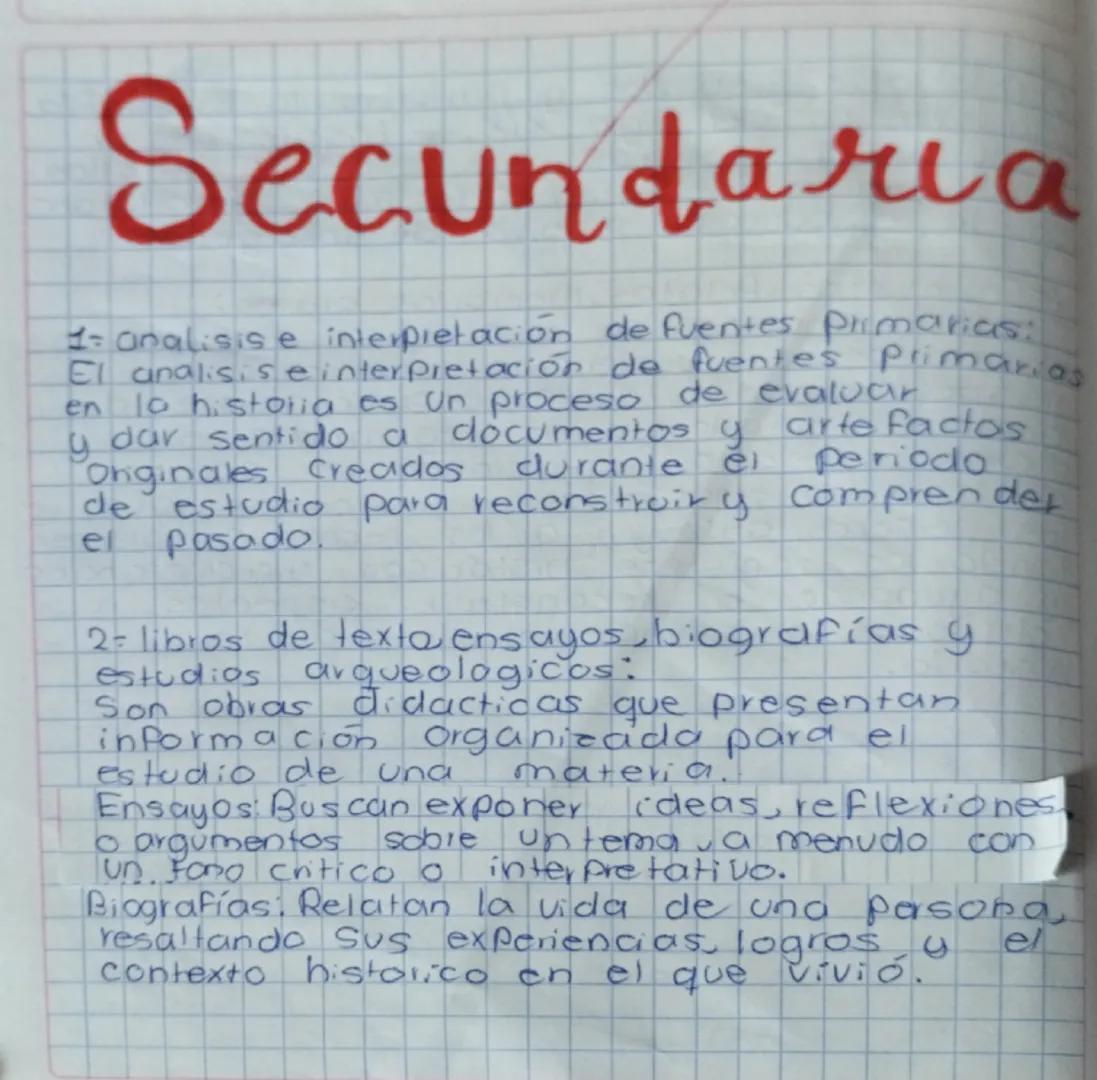 Secundaria
1= analisis e interpretación de fuentes primarias:
El analisis e interpretación de fuentes primarias
en la historia es un proceso de evaluar
y dar sentido a documentos y artefactos
originales creados durante el periodo
de estudio para reconstruir y comprender
el pasado.
2= libros de texto, ensayos, biografías y
estudios arqueologicos:
Son obras didacticas que presentan
información organizada para el
estudio de una materia.
Ensayos: Buscan exponer ideas, reflexiones
o argumentos sobre un tema, a menudo con
un tono critico o interpretativo.
Biografías: Relatan la vida de una persona,
resaltando sus experiencias, logros y el
contexto historico en el que vivió.